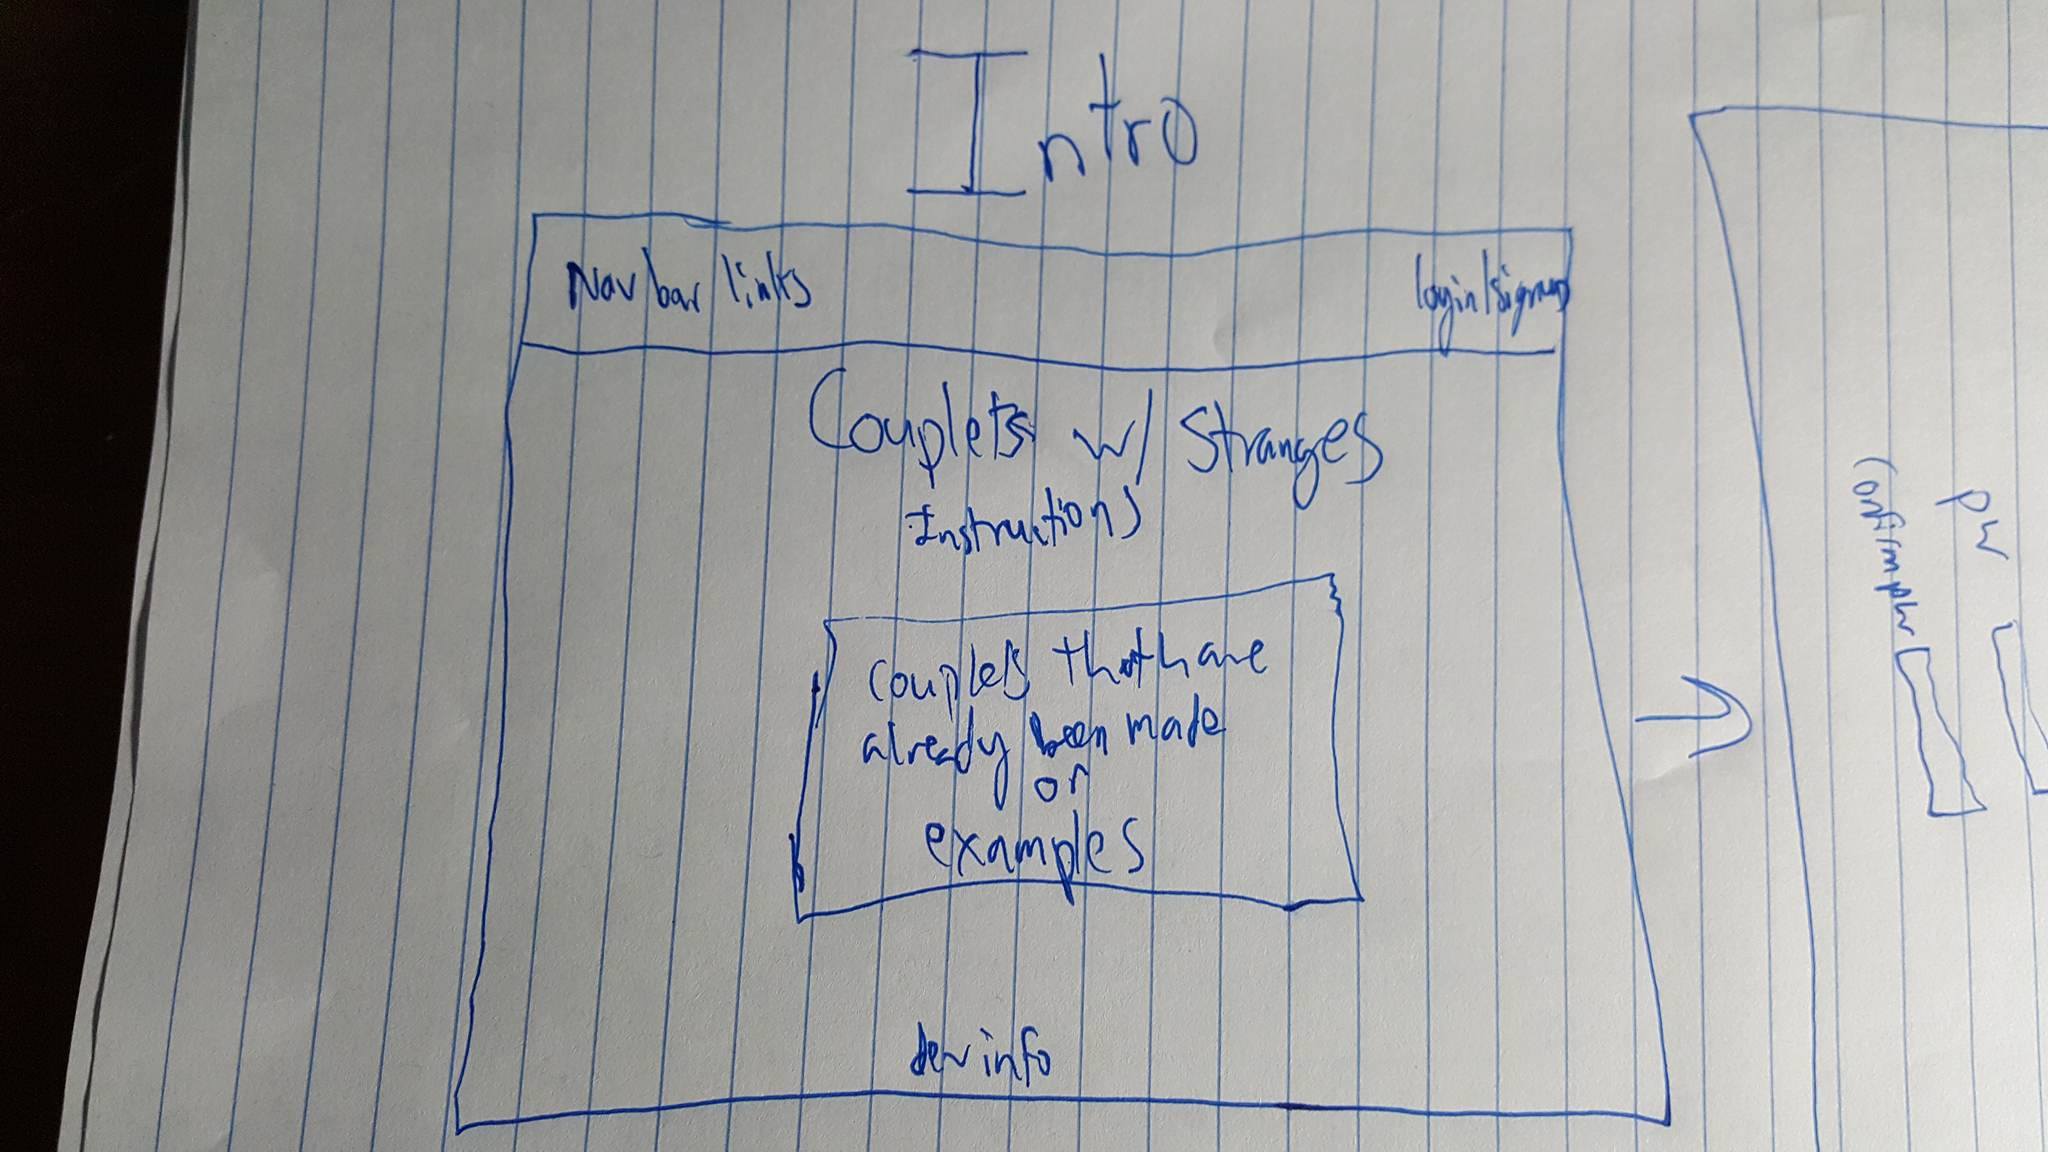 Intro
Nav bar links
login/signup
Couplets w/ Stranges
Instructions
couplets that have
already been made
or
examples
dev info
pw
confirm pw